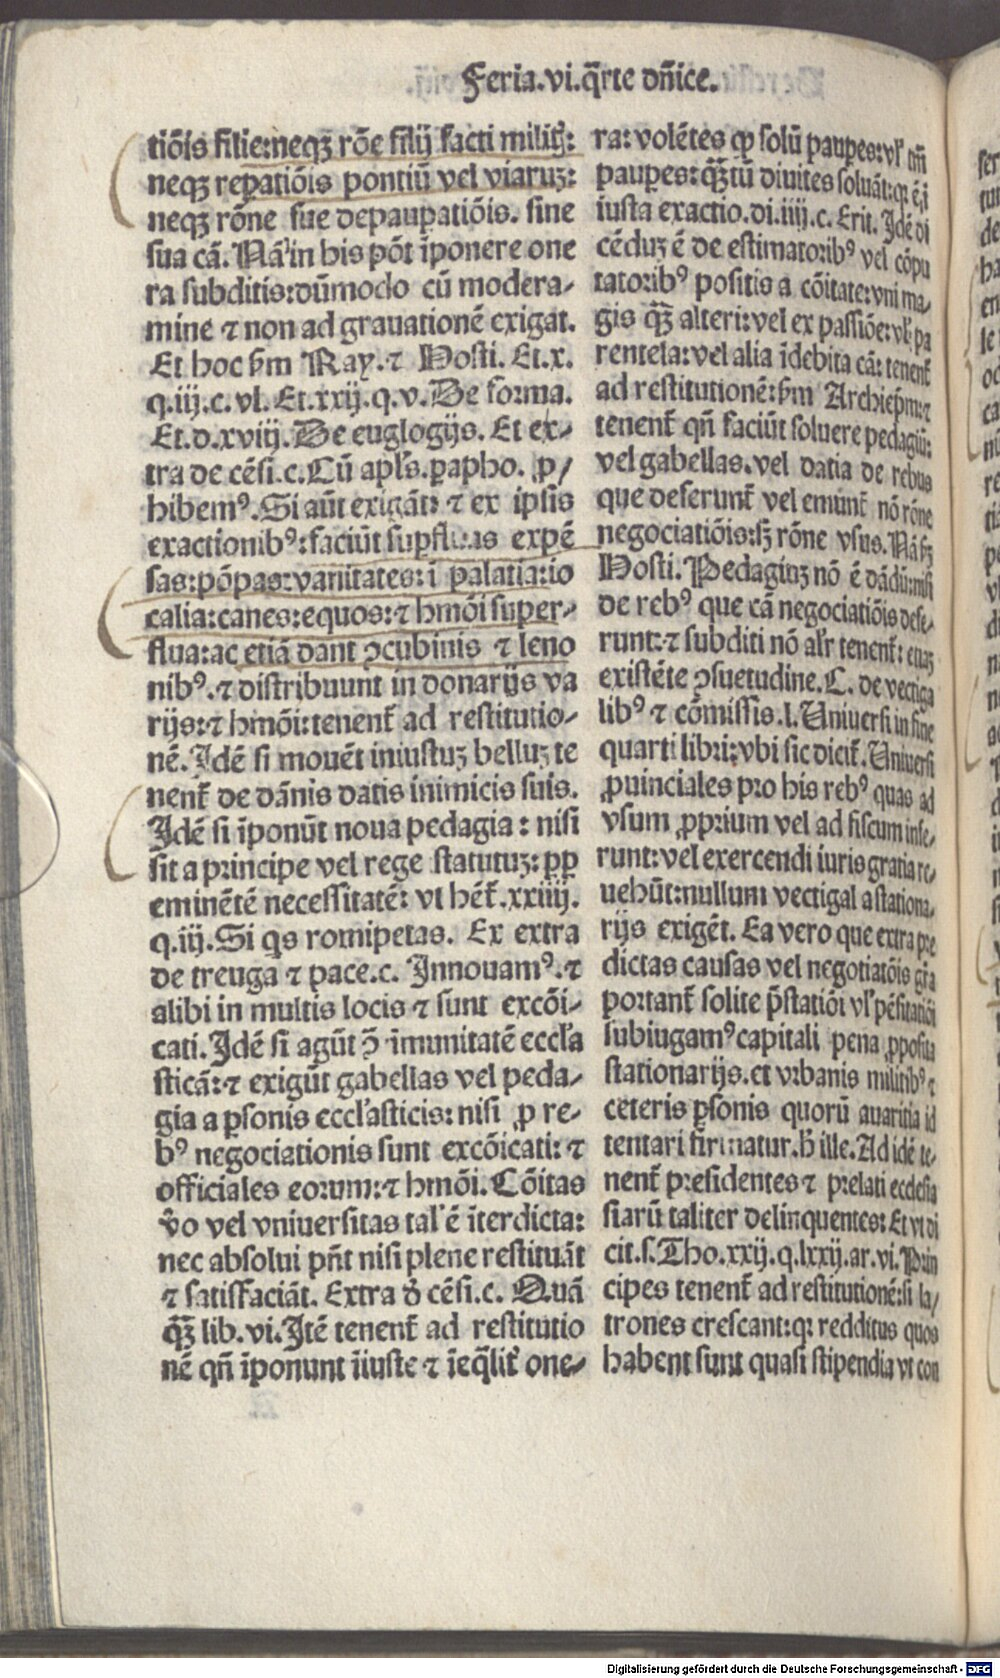 Feria.vi.q̄rte dn̄ice.
tiōis filie:neqꝫ rōe filij facti militꝭ:
neqꝫ reꝑatiōis pontiū vel viaruꝫ:
neqꝫ rōne sue depauꝑatiōis. sine
sua cā. Nā in his pōt īponere one
ra subditis:dūmodo cū modera-
mine ⁊ non ad grauationē exigat.
Et hoc ẜm Ray.⁊ Hosti. Et.x.
q.iij.c.vl. Et.xxij.q.v. De forma.
Et.d.xviij. De euglogijs. Et ex-
tra de cēsi.c. Cū apl's.ꝑapho. ꝓ/
hibemꝰ. Si aūt exigāt: ⁊ ex ipsis
exactionibꝰ:faciūt suꝑfluas expē
sas:pōpas:vanitates:ī palatia:io
calia:canes:equos:⁊ hmōi super-
flua:ac etiā dant ꝯcubinis ⁊ leno
nibꝰ.⁊ distribuunt in donarijs va
rijs:⁊ hmōi:tenent̄ ad restitutio-
nē. Idē si mouēt iniustuꝫ belluꝫ te
nent̄ de dānis datis inimicis suis.
Idē si īponūt noua pedagia: nisi
sit a principe vel rege statutuꝫ: ꝓp
eminētē necessitatē: vt hēt̄.xxiiij.
q.iij. Si qs romipetas. Ex extra
de treuga ⁊ pace.c. Innouamꝰ.⁊
alibi in multis locis ⁊ sunt excōi-
cati. Idē si agūt ꝯ īmunitatē eccl'a
sticā:⁊ exigūt gabellas vel peda-
gia a ꝑsonis eccl'asticis: nisi ꝓ re-
bꝰ negociationis sunt excōicati: ⁊
officiales eorum:⁊ hmōi. Cōitas
v̄o vel vniuersitas tal' ē īterdicta:
nec absolui pn̄t nisi plene restituāt
⁊ satisfaciāt. Extra d̄ cēsi.c. Quā
qꝫ lib.vi. Itē tenent̄ ad restitutio
nē qn̄ īponunt īiuste ⁊ īeq̄lit̄ one-
ra: volētes ꝙ solū pauꝑes:vl' tm̄
pauꝑes:qꝫtū diuites soluāt:qꝛ ē ī
iusta exactio.di.iiij.c. Erit. Idē di
cēduꝫ ē de estimatoribꝰ vel cōpu
tatoribꝰ positis a cōitate:vni ma-
gis qꝫ alteri:vel ex passiōe:vl' pa
rentela:vel alia īdebita cā: tenent̄
ad restitutionē:ẜm Archiep̄m:⁊
tenent̄ qn̄ faciūt soluere pedagiū:
vel gabellas.vel datia de rebus
que deferunt̄ vel emūnt̄ nō rōne
negociatiōis:sꝫ rōne vsus. Nā ẜꝫ
Hosti. Pedagiuꝫ nō ē dādū:nisi
de rebꝰ que cā negociatiōis defe-
runt:⁊ subditi nō al'r tenent̄: etiaꝫ
existēte ꝯsuetudine. C. de vectiga
libꝰ ⁊ cōmissis.l. Uniuersi in fine
quarti libri:vbi sic dicit̄. Uniuersi
ꝓuinciales pro his rebꝰ quas ad
vsum ꝓprium vel ad fiscum infe-
runt:vel exercendi iuris gratia re-
uehūt:nullum vectigal a stationa-
rijs exigēt. Ea vero que extra pre
dictas causas vel negotiatōis gr̄a
portant̄ solite p̄statiōi vl' pēsitatiōi
subiugamꝰ capitali pena ꝓposita
stationarijs.et vrbanis militibꝰ ⁊
ceteris ꝑsonis quorū auaritia id
tentari firmatur.h̄ ille. Ad idē te-
nent̄ presidentes ⁊ prelati ecclesia
siarū taliter delinquentes: Et vt di
cit.s. Tho.xxij.q.lxxij.ar.vi. Prin
cipes tenent̄ ad restitutionē:si la/
trones crescant:qꝛ redditus quos
habent sunt quasi stipendia vt con
Digitalisierung gefördert durch die Deutsche Forschungsgemeinschaft - DFG